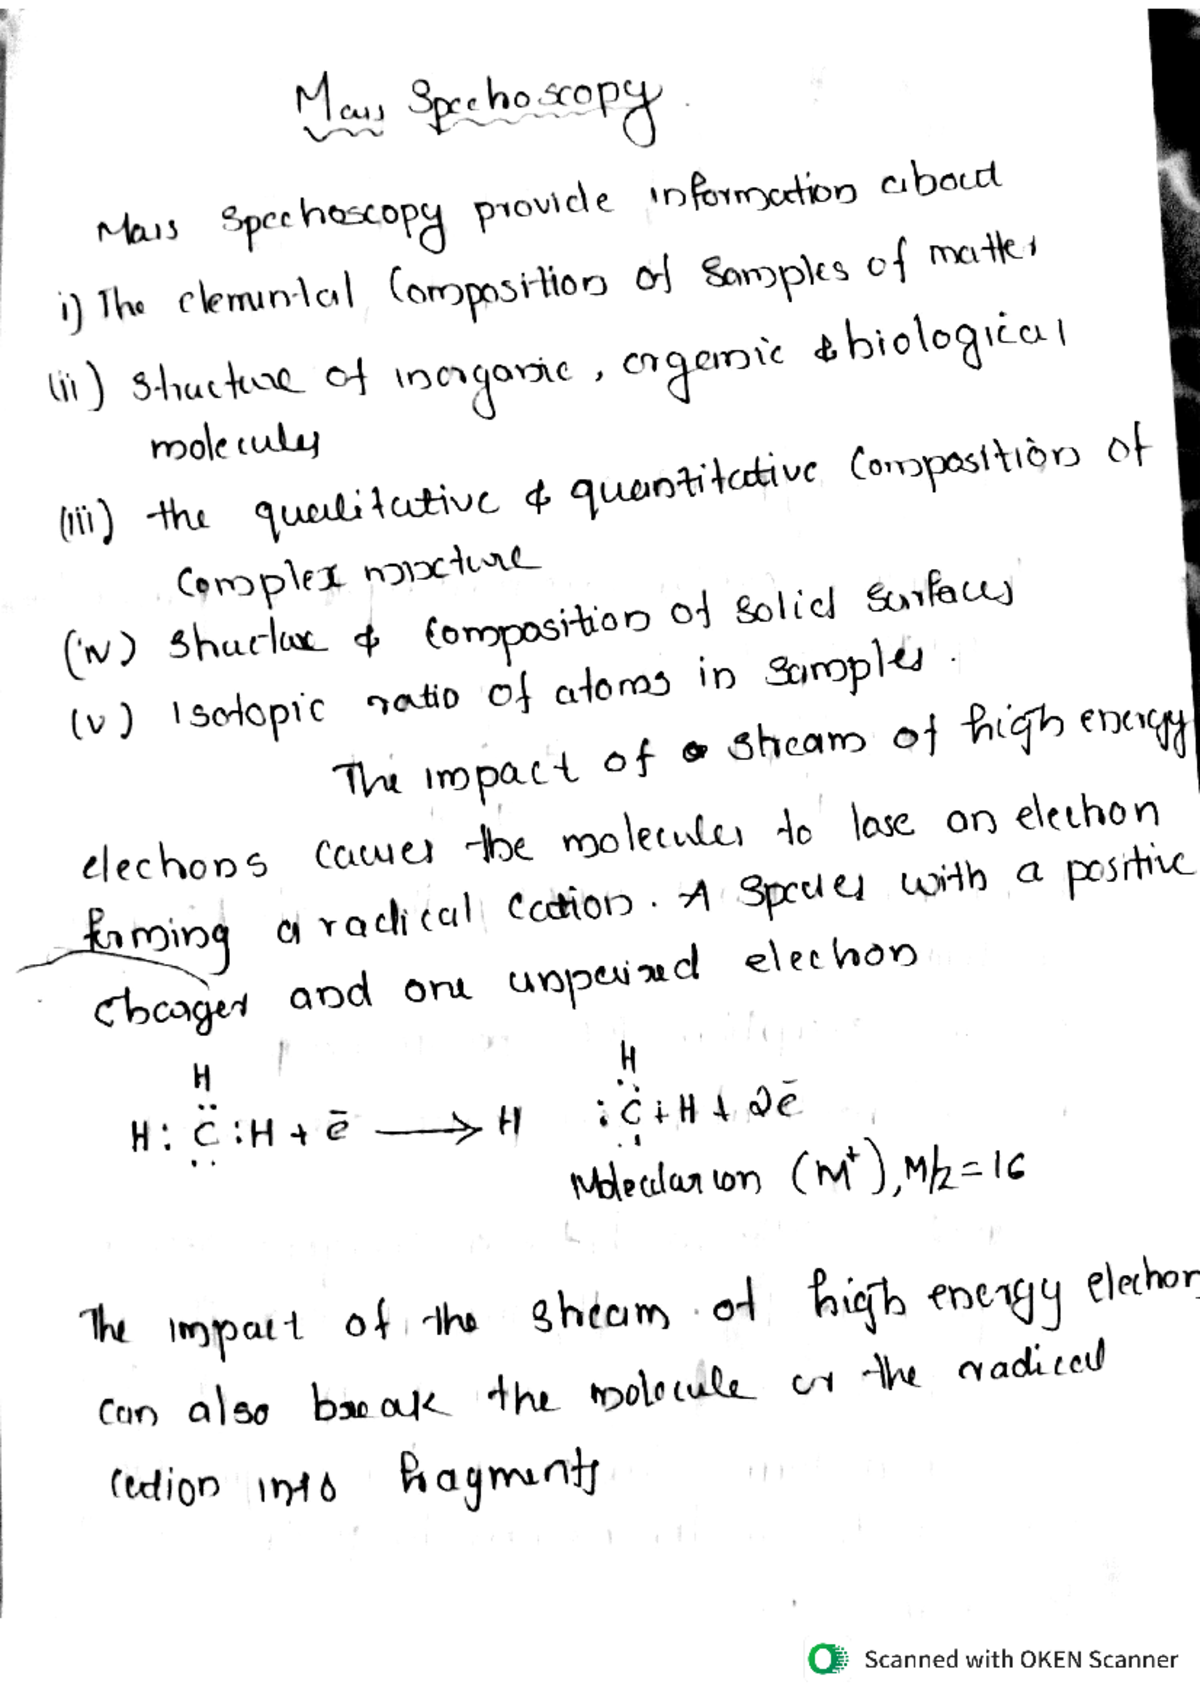 Mass Spectroscopy
Mass Spectroscopy provide information about
i) The elemental Composition of Samples of matter
(ii) structure of inorganic, organic & biological
molecules
(iii) the qualitative & quantitative Composition of
Complex mixture
(iv) structure & Composition of solid surfaces
(v) Isotopic ratio of atoms in samples.
The impact of a stream of high energy
electrons causes the molecules to lose an electron
forming a radical cation. A Species with a positive
charges and one unpaired electron
H H
H : C : H + e̅ ⟶ H : C + H + 2e̅
Molecular ion (M⁺), M/z = 16
The impact of the stream of high energy electron
can also break the molecule or the radical
cation into fragments
Scanned with OKEN Scanner